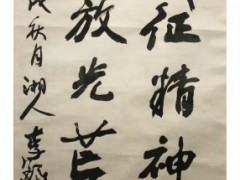 征精神
放光芒
秋月湖人李